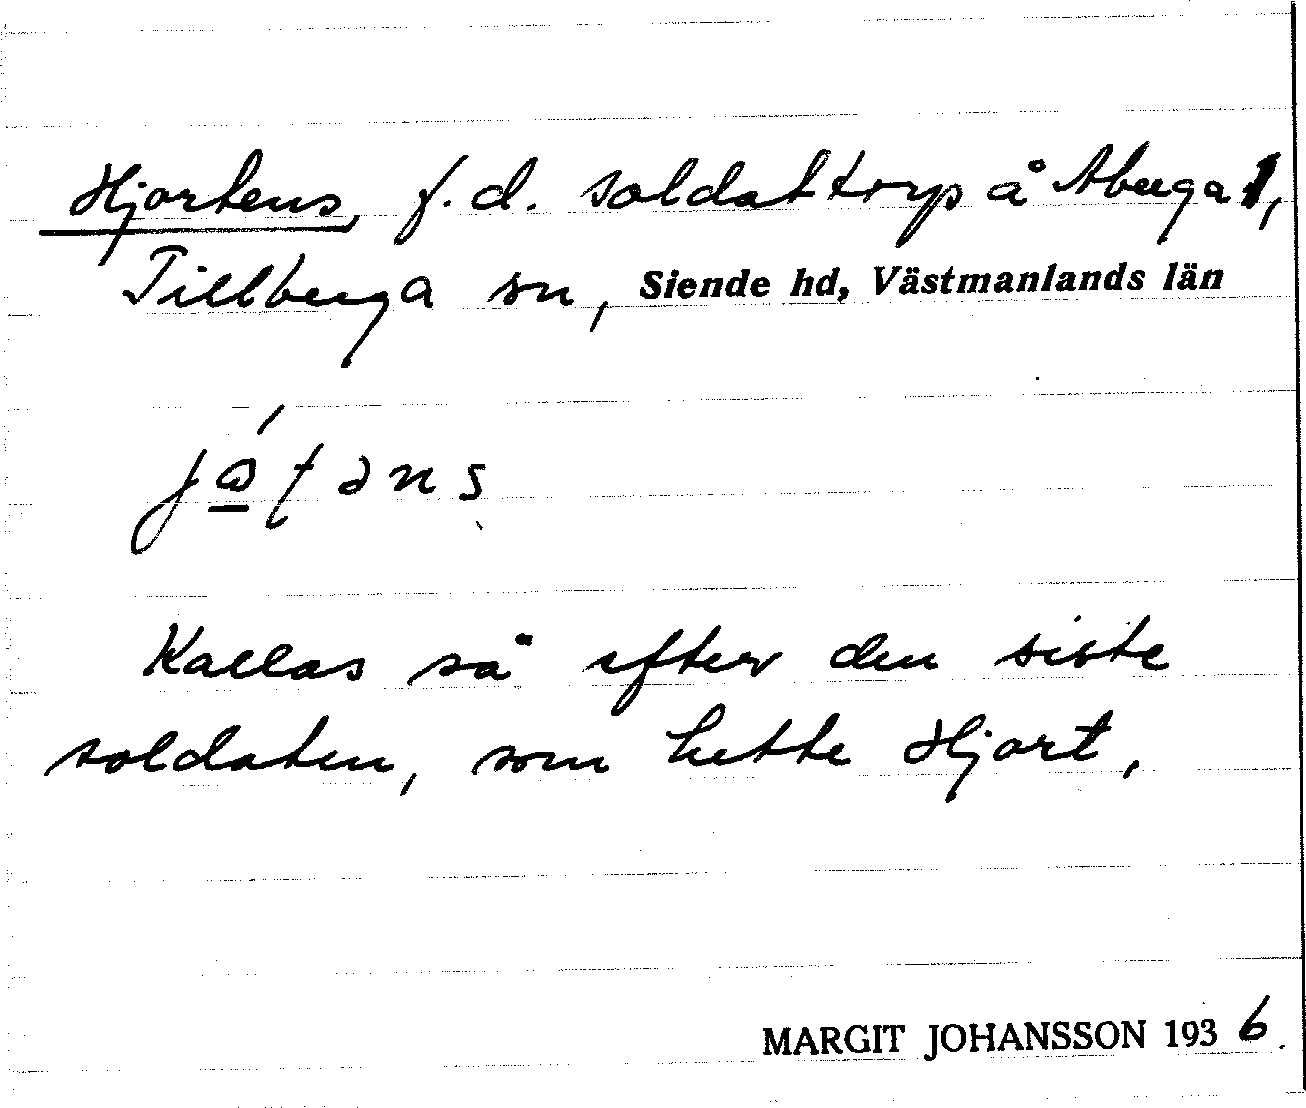 Hjortens, f.d. soldattorp å Aberga 1,
Tillberga sn, Siende hd, Västmanlands län
Kallas så efter den siste
soldaten, som hette Hjort,
MARGIT JOHANSSON 1936.